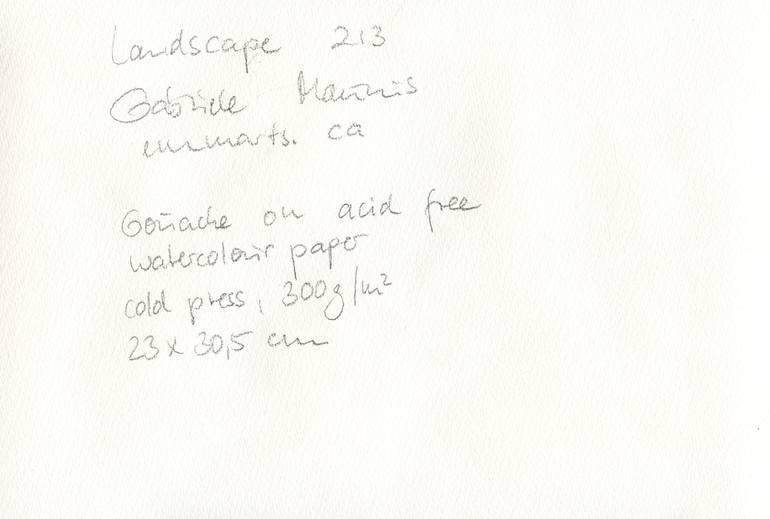 Landscape 213
Gabriele Maurus
emmarts.ca
Gouache on acid free
watercolour paper
cold press, 300g/m²
23 x 30,5 cm